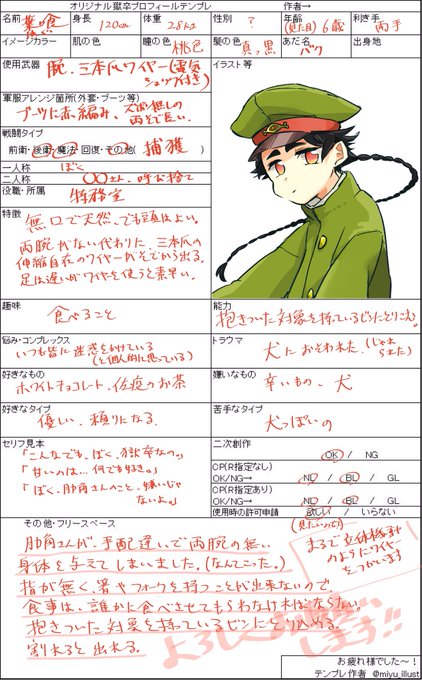 オリジナル獄卒プロフィールテンプレ 作者→
名前 身長 120cm 体重 28kg 性別 ? 年齢 (見た目)6歳 利き手 両手
イメージカラー 肌の色 瞳の色 桃色 髪の色 真ッ黒 あだ名 バク 出身地
使用武器 腕、三本爪ワイヤー(電気ショック付き)
イラスト等
軍服アレンジ箇所(外套・ブーツ等)
ブーツに赤い編み、ズボン無しの
両そで長い。
戦闘タイプ
前衛・後衛・魔法・回復・その他( 捕獲
一人称 ぼく
二人称 〇〇さん、呼び捨て
役職・所属 特務室
特徴
無口で天然、でも頭はよい。
両腕がない代わりに、三本爪の
伸縮自在のワイヤーがそでから出る。
足は遅いがワイヤを使うと素早い。
趣味
食べること
能力
抱きついた対象を持っているビンにとりこむ。
悩み・コンプレックス
いつも皆に迷惑をかけている
(と個人的に思っている)
トラウマ
犬におそわれた(じゃれられた)
好きなもの
ホワイトチョコレート、佐疫のお茶
嫌いなもの
辛いもの、犬
好きなタイプ
優しい、頼りになる。
苦手なタイプ
犬っぽいの
セリフ見本
「こんなでも、ぼく、獄卒なの。」
「甘いのは…何でも好き。」
「ぼく、肋角さんのこと、嫌いじゃ
ないよ。」
二次創作
OK / NG
CP(R指定なし)
OK/NG→ NL / BL / GL
CP(R指定あり)
OK/NG→ NL / BL / GL
使用時の許可申請 欲しい / いらない
(見たいので)
まるで立体機動
のようにワイヤー
をつかいます
その他・フリースペース
肋角さんが、手配違いで両腕の無い
身体を与えてしまいました。(なんてこった。)
指が無く、箸やフォークを持つことが出来ないので
食事は、誰かに食べさせてもらわなければならない。
抱きついた対象を持っているビンにとり込める。
割れると出来る。
よろしくお願い
します!!
お疲れ様でした~!
テンプレ作者 @miyu_illust